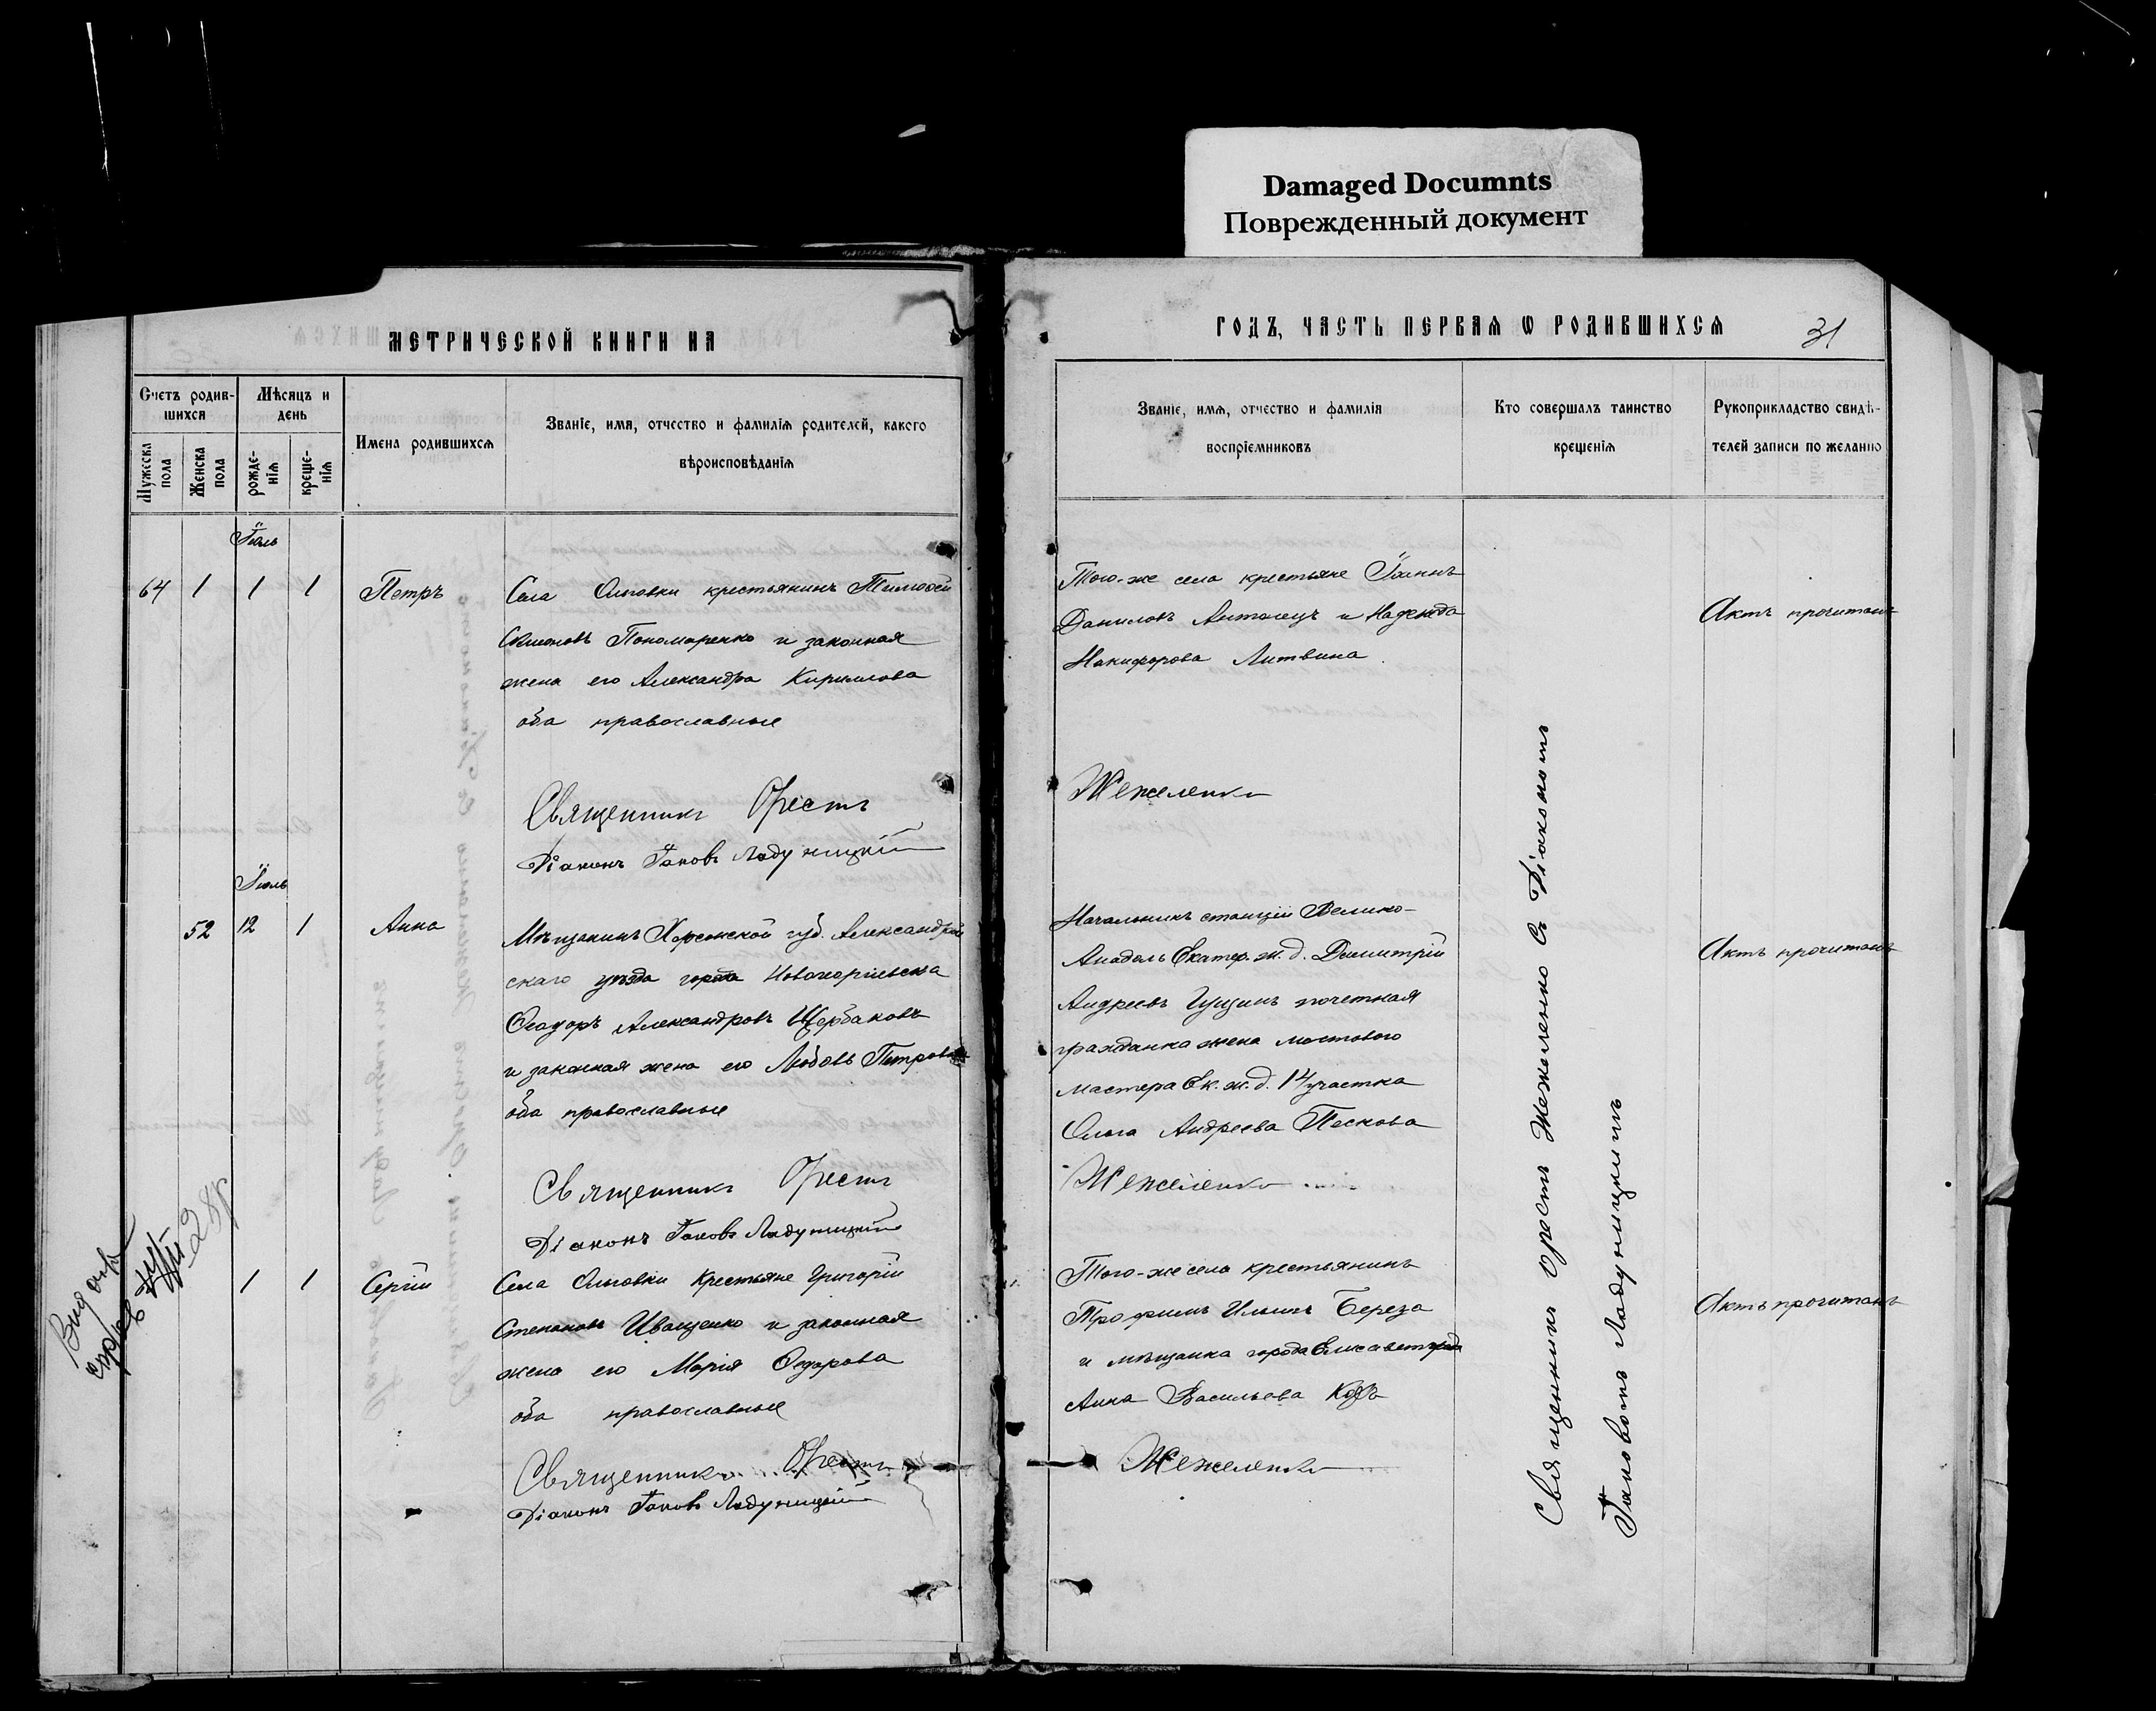 Damaged Documnts
Поврежденный документ
МЕТРИЧЕСКОЙ КНИГИ НА
Счетъ родив-
шихся
Мѣсяцъ и
день
Мужеска
пола
Женска
пола
рожде-
нія
креще-
нія
Имена родившихся
Званіе, имя, отчество и фамилія родителей, какого
вѣроисповѣданія
Іюль
64 1 1 1 Петръ
Села Ольговки крестьянинъ Тимоѳей
Симоновъ Пономаренко и законная
жена его Александра Кириллова
оба православные
Священникъ Орестъ
Діаконъ Іаковъ Ладужицкій
Іюль
52 12 1 Анна
Мѣщанинъ Херсонской губ. Александрій
скаго уѣзда города Новогоргіевска
Ѳеодоръ Александровъ Щербаковъ
и законная жена его Любовь Петрова
оба православные
Священникъ Орестъ
Діаконъ Іаковъ Ладужицкій
1 1 Сергій
Села Ольговки Крестьяне Григорій
Степановъ Иващенко и законная
жена его Марія Ѳедорова
оба православные
Священникъ Орестъ
Діаконъ Іаковъ Ладужицкій
ГОДЪ, ЧАСТЬ ПЕРВАЯ Ѡ РОДИВШИХСЯ
31
Званіе, имя, отчество и фамилія
воспріемниковъ
Кто совершалъ таинство
крещенія
Рукоприкладство свидѣ-
телей записи по желанію
Того-же села крестьяне Іоаннъ
Даниловъ и Надежда
Никифорова Литвина
Жежеленко
Актъ прочитанъ
Начальникъ станціи Велико-
Анадоль Екатер. ж. д. Димитрій
Андреевъ Гущинъ почетная
гражданка жена мостового
мастера Ек. ж. д. 14 участка
Ольга Андреева Пескова
Жежеленко
Актъ прочитанъ
Того-же села крестьянинъ
Трофимъ Ильинъ Береза
и мѣщанка города Елисаветграда
Анна Васильева
Жежеленко
Актъ прочитанъ
Священникъ Орестъ Жежеленко съ Діакономъ
Іаковомъ Ладужицкимъ